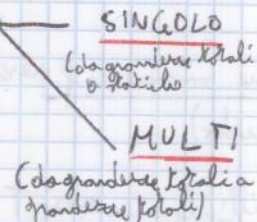 SINGOLO
(da grandezze totali
a statiche
MULTI
(da grandezze totali a
grandezze totali)